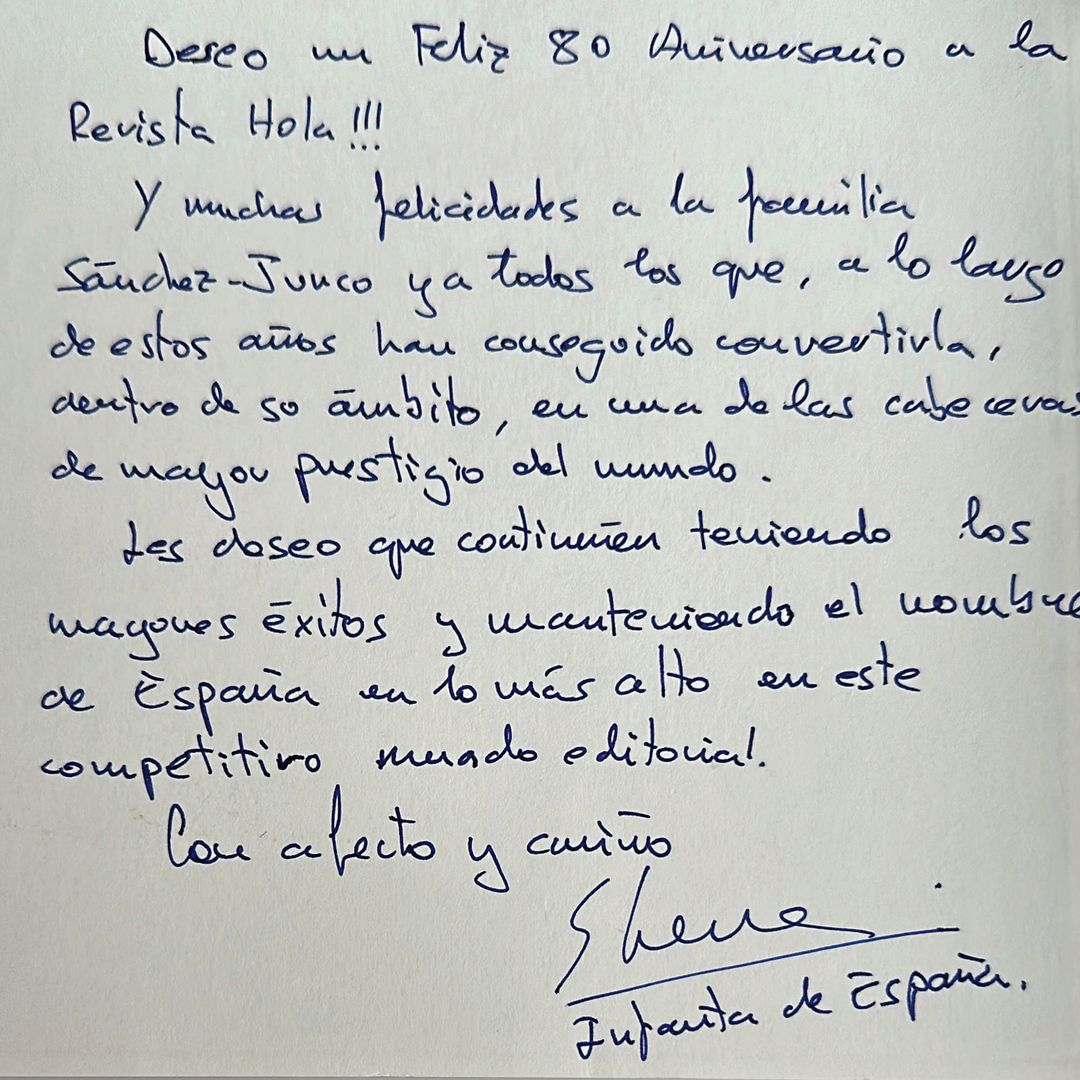 Deseo un Feliz 80 Aniversario a la
Revista Hola!!!
Y muchas felicidades a la familia
Sánchez-Junco y a todos los que, a lo largo
de estos años han conseguido convertirla,
dentro de su ámbito, en una de las cabeceras
de mayor prestigio del mundo.
Les deseo que continúen teniendo los
mayores éxitos y manteniendo el nombre
de España en lo más alto en este
competitivo mundo editorial.
Con afecto y cariño
Elena
Infanta de España.